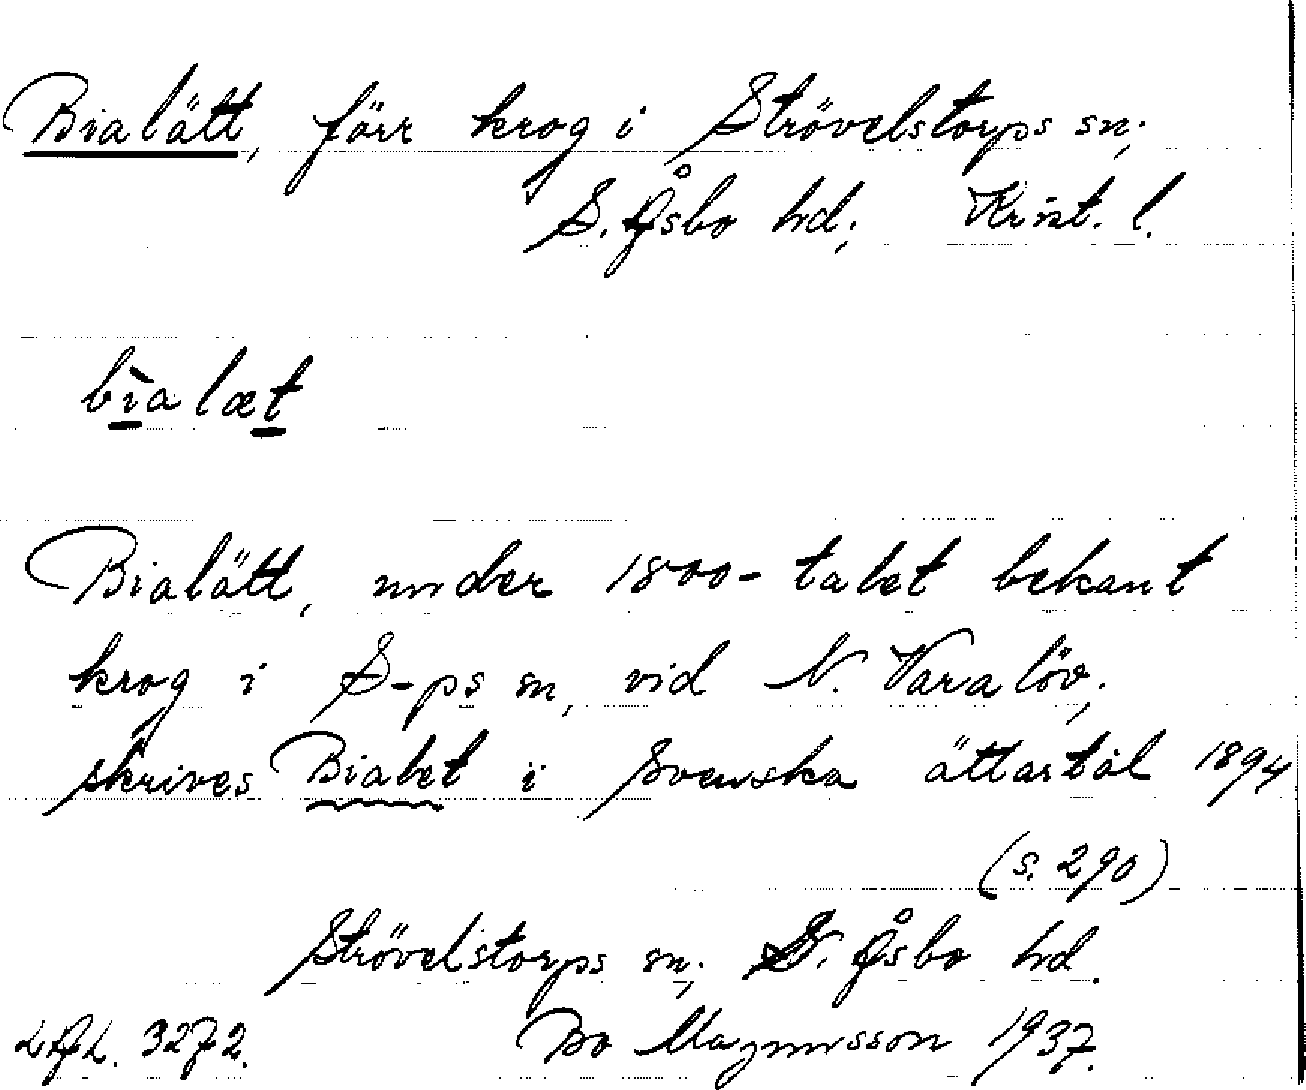 Bialätt, förr krog i Strövelstorps sn;
S. Åsbo hd; Krist. l.
bìalæt
Bialätt, under 1800-talet bekant
krog i S-ps sn, vid N. Varalöv;
skrives Bialet i Svenska ättartal 1894
(s. 290)
Strövelstorps sn; S. Åsbo hd.
LAL. 3272. Bo Magnusson 1937.